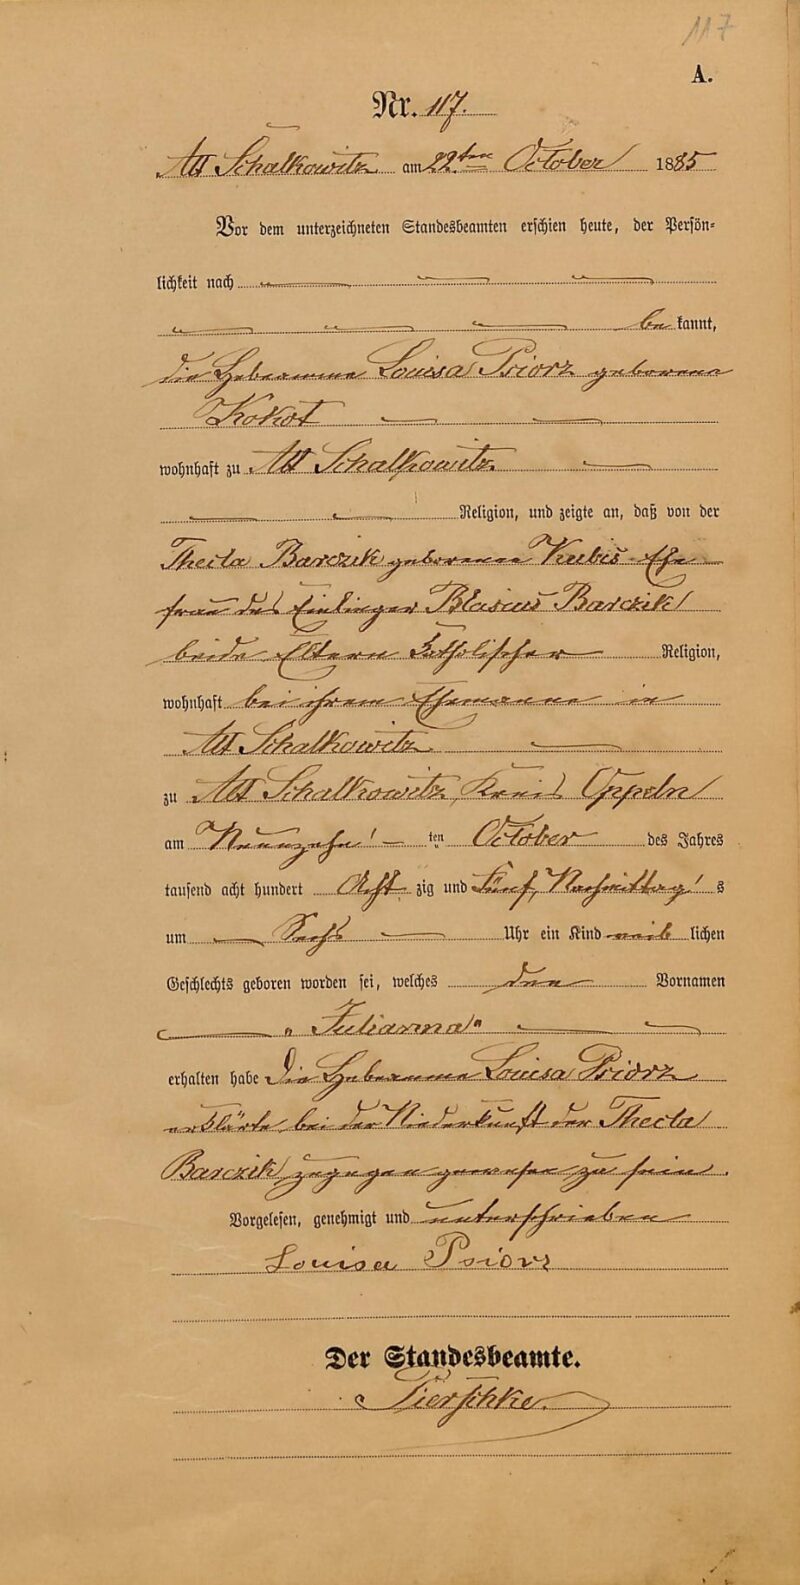 117
A.
Nr. 117.
Alt Schalkowitz am 22ten October 1885
Vor dem unterzeichneten Standesbeamten erschien heute, der Persön-
lichkeit nach
be kannt,
die Hebamme Louisa Psiorz geborene
Kokot
wohnhaft zu Alt Schalkowitz
Religion, und zeigte an, daß von der
Thecla Barczik geborenen Kubis Ehe
frau des Einlieger Blasius Barczik
beide Eltern katholischer Religion,
wohnhaft bei ihrem Ehemanne in
Alt Schalkowitz
zu Alt Schalkowitz, Kreis Oppeln
am Neunzehn ten October des Jahres
tausend acht hundert Acht zig und Fünf, Nachmittag s
um Sechs Uhr ein Kind weib lichen
Geschlechts geboren worden sei, welches den Vornamen
„Julianna"
erhalten habe Die Hebamme Louisa Psiorz
erklärte bei der Niederkunft der Thecla
Barczik zugegen gewesen zu sein.
Vorgelesen, genehmigt und unterschrieben
Louisa Psiorz
Der Standesbeamte.
Pierschke.